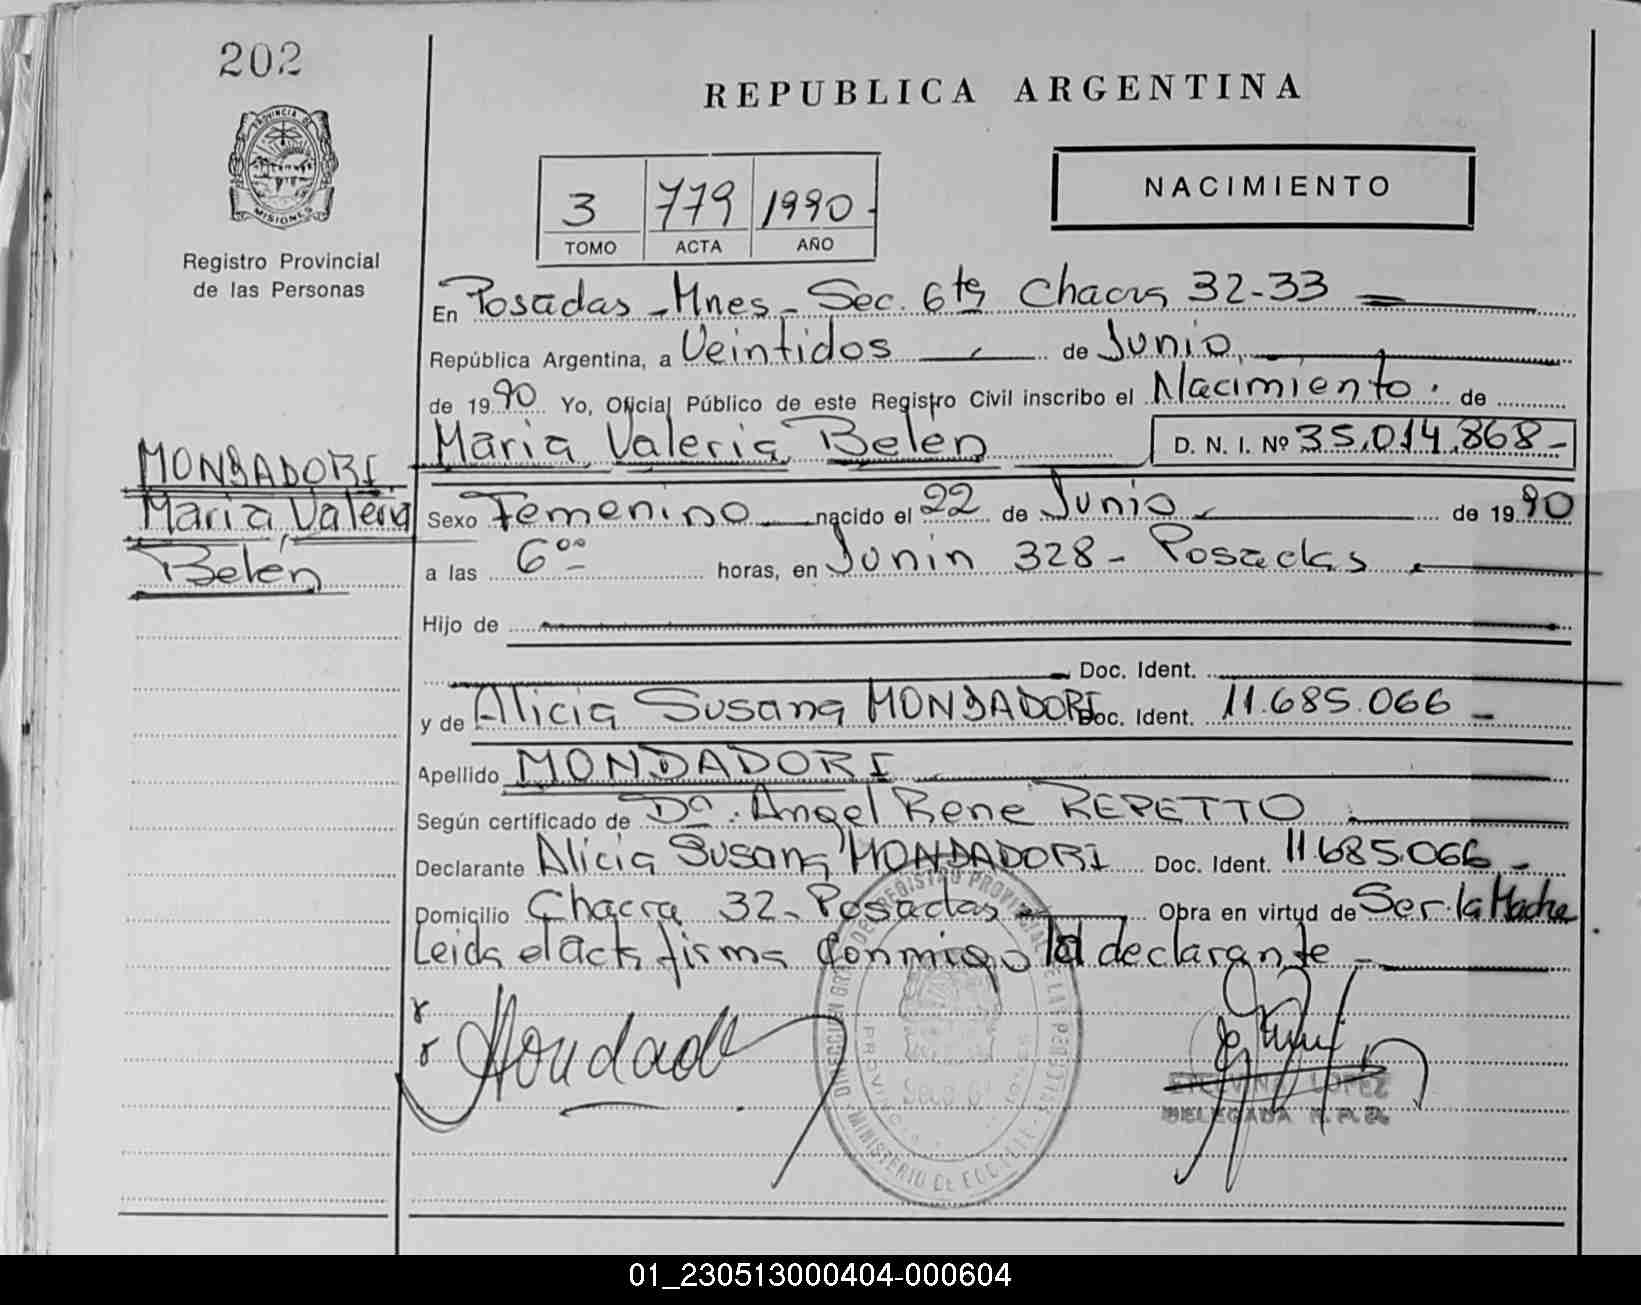 202
REPUBLICA ARGENTINA
PROVINCIA DE
MISIONES
Registro Provincial
de las Personas
3 779 1990
TOMO ACTA AÑO
NACIMIENTO
En Posadas - Mnes - Sec. 6ta Chacra 32-33
República Argentina, a Veintidos de Junio
de 1990 Yo, Oficial Público de este Registro Civil inscribo el Nacimiento de
Maria Valeria Belén D. N. I. Nº 35.014.868-
MONDADORI
Maria Valeria
Belén
Sexo Femenino nacido el 22 de Junio de 1990
a las 6 00 horas, en Junin 328 - Posadas
Hijo de
Doc. Ident.
y de Alicia Susana MONDADORI Doc. Ident. 11.685.066 -
Apellido MONDADORI
Según certificado de Angel Rene REPETTO
Declarante Alicia Susana MONDADORI Doc. Ident. 11.685.066 -
Domicilio Chacra 32 - Posadas Obra en virtud de Ser la Madre
Leida el acta firma conmigo la declarante -
LOPEZ
DELEGADA R.P.P.
01_230513000404-000604